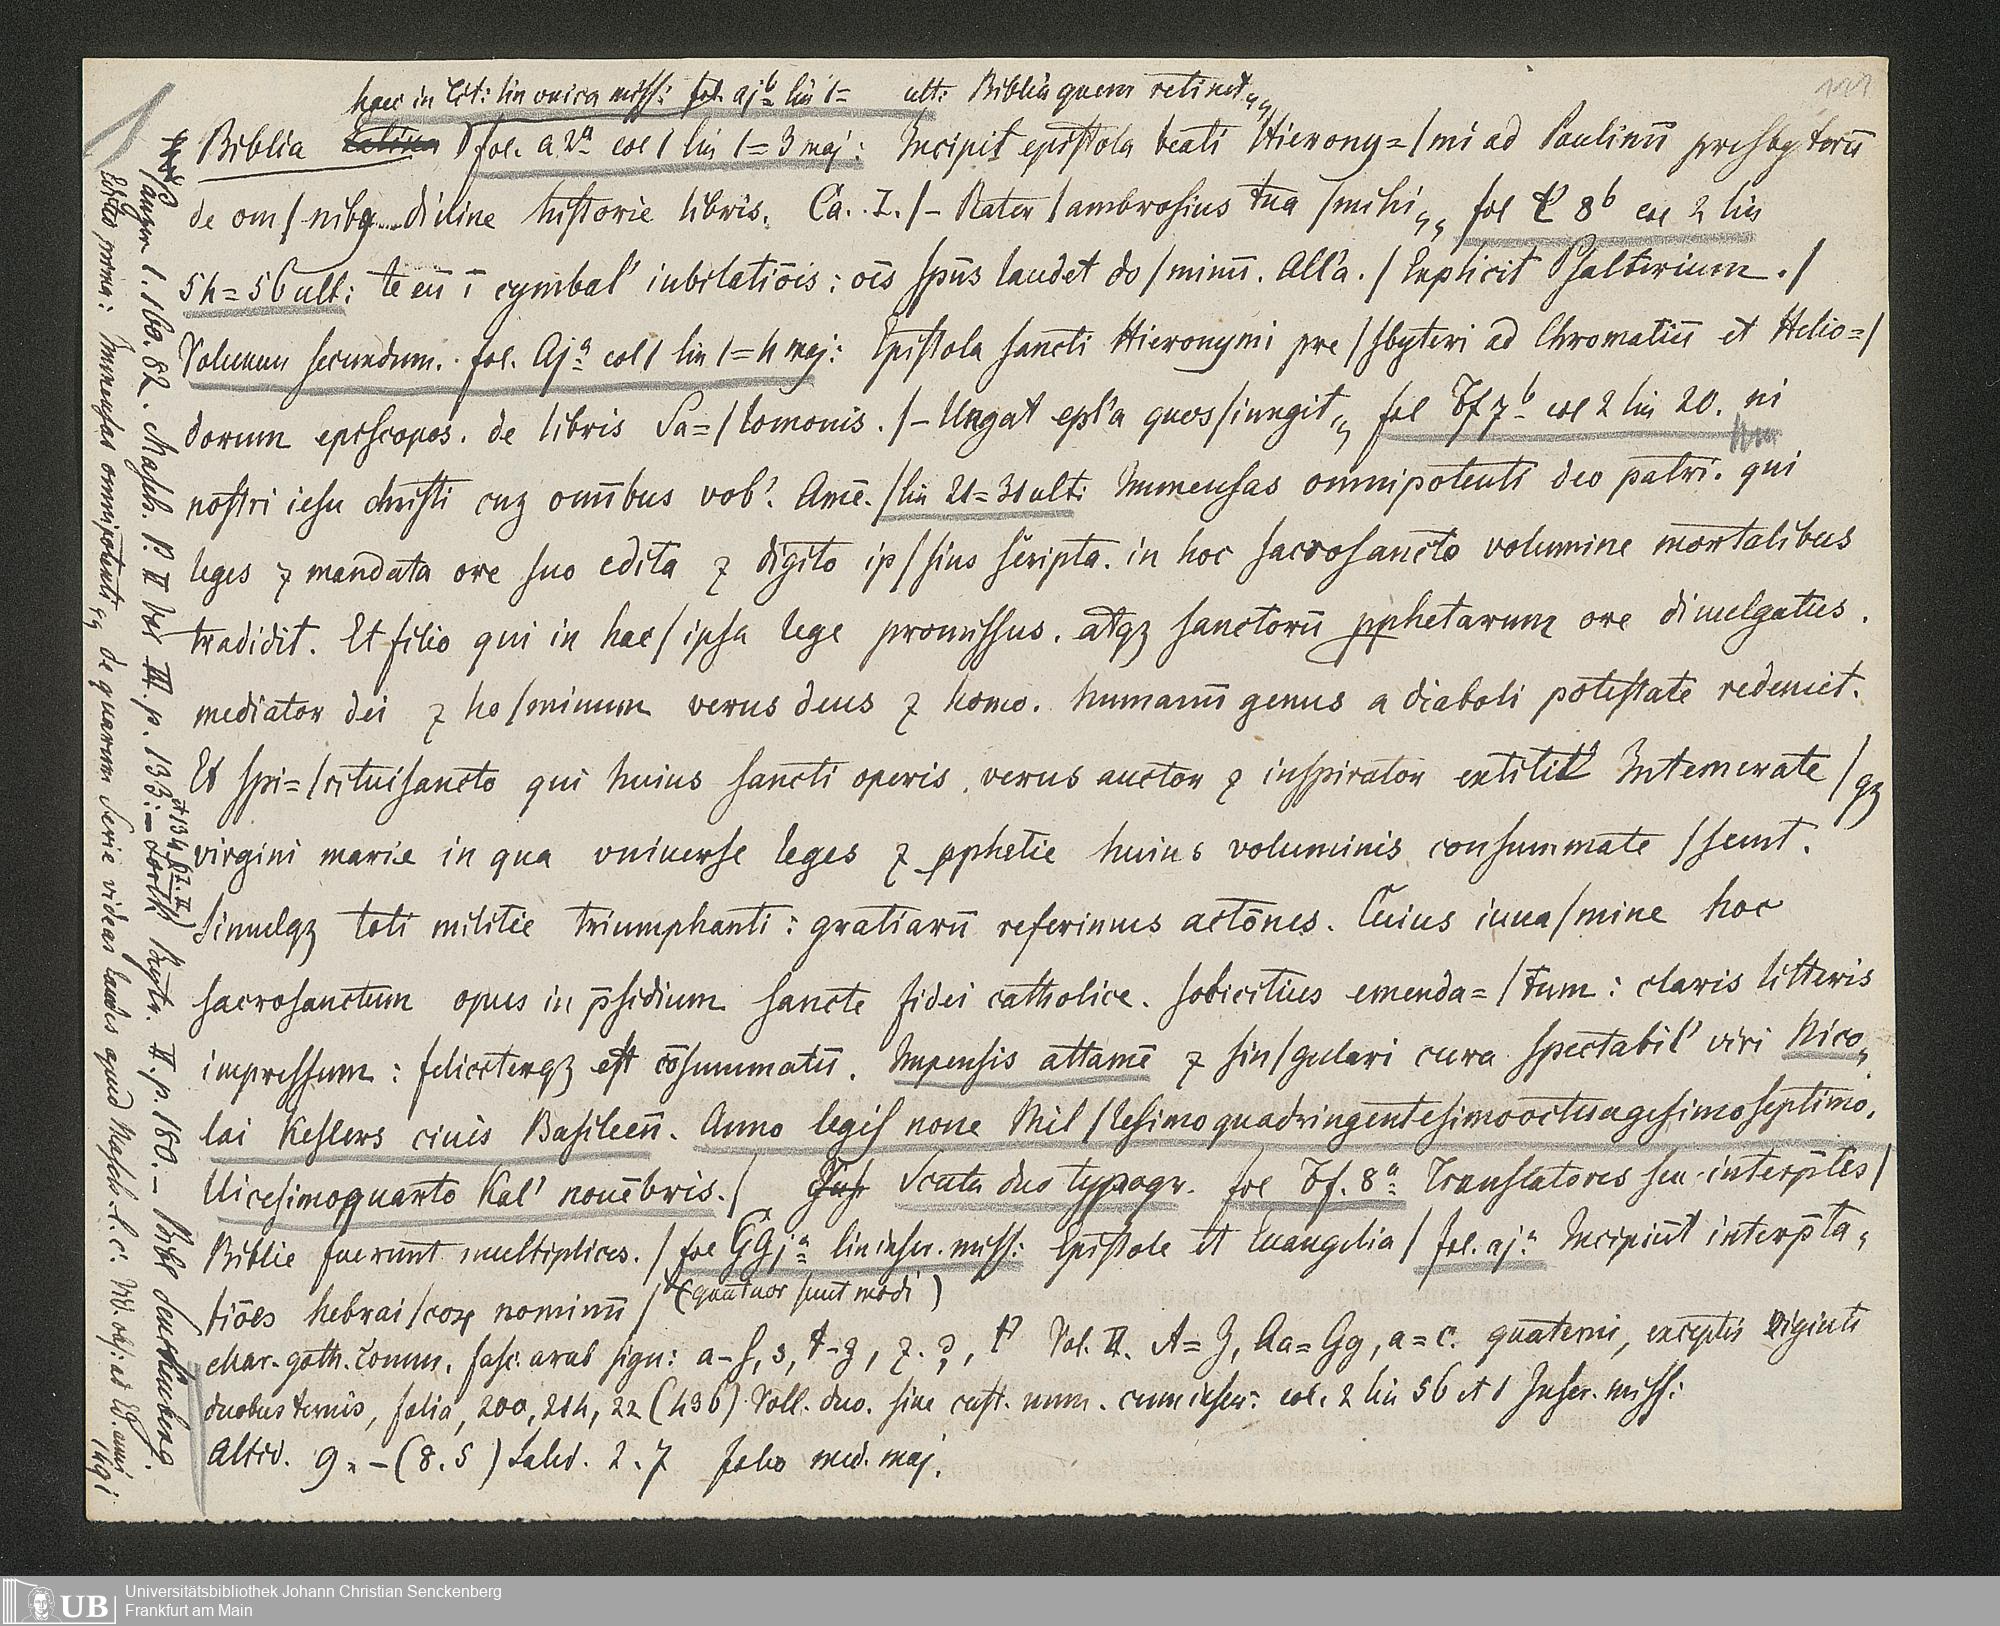 haec in tit: lin unica miss: fol. aj b lin 1= ult: Biblia quem retinet„
Biblia Latina fol. a 2a col 1 lin 1=3 maj: Incipit epistola beati Hierony=/mi ad Paulinū presbyterū
de om/nibꝫ diuine historie libris. Ca. I./– Frater /ambrosius tua /mihi„ fol 8b col 2 lin
54=56 ult: te eū ī cymbal' iubilatiōis: oīs spūs laudet do/minū. All'a. / Explicit Psalterium./
Volumen secundum. fol. Aja col 1 lin 1=4 maj: Epistola sancti Hieronymi pre/sbyteri ad Chromatiū et Helio=/
dorum episcopos. de libris Sa=/lomonis./– Iungat epl'a quos/iungit„ fol Ff 7b col 2 lin 20. ni
nostri iesu christi cuꝫ omībus vob'. Amē./lin 21=31 ult: Immensas omnipotenti deo patri. qui
leges ⁊ mandata ore suo edita ⁊ digito ip/sius scripta. in hoc sacrosancto volumine mortalibus
tradidit. Et filio qui in hac/ipsa lege promissus. atqꝫ sanctorū ꝓphetarum ore diuulgatus.
mediator dei ⁊ ho/minum verus deus ⁊ homo. humanū genus a diaboli potestate redemit.
Et spi=/rituisancto qui huius sancti operis verus auctor ⁊ inspirator extitit Intemerate /qꝫ
virgini marie in qua vniuerse leges ⁊ ꝓphetie huius voluminis consummate /sunt.
Simulqꝫ toti militie triumphanti: gratiarū referimus actōnes. Cuius iuua/mine hoc
sacrosanctum opus in p̄sidium sancte fidei catholice. solicitius emenda=/tum: claris litteris
impressum: feliciterqꝫ est cōsummatū. Impensis attamē ⁊ sin/gulari cura spectabil' viri Nico„
lai Keslers ciuis Basileēn. Anno legis noue Mil/lesimoquadringentesimooctuagesimoseptimo.
Uicesimoquarto Kal' nouēbris./ Scuta duo typogr. fol Ff. 8a Translatores seu interp̄tes/
Biblie fuerunt multiplices./fol GGja lin inser. miss: Epistole et Euangelia/ fol. aja Incipiūt interp̄ta„
tiōes hebrai/coꝝ nominū / (quatuor sunt modi)
char. goth. Comm. sign: a–ſ, s, t–z, ⁊. ꝯ, Vol. II. A=Z, Aa=Gg, a=c. quaterni, exceptis viginti
duobus ternis, folia, 200, 214, 22 (436) Voll. duo. sine cust. num. cum inscr: col. 2 lin 56 et 1 Inser. miss:
Altid. 9.–(8.5) Latid. 2.7 folio med. maj.
Panzer I. 160. 82. Masch. P. II Vol III. p. 133: et 134 Bytr. II. p. 180.– Bibl Senckenberg.
Editio prima: Immensas omnipotenti„ de quarum Serie videas laudes apud Masch. l. c. Vid. obs: ad Ed. anni 1491
Universitätsbibliothek Johann Christian Senckenberg
UB Frankfurt am Main